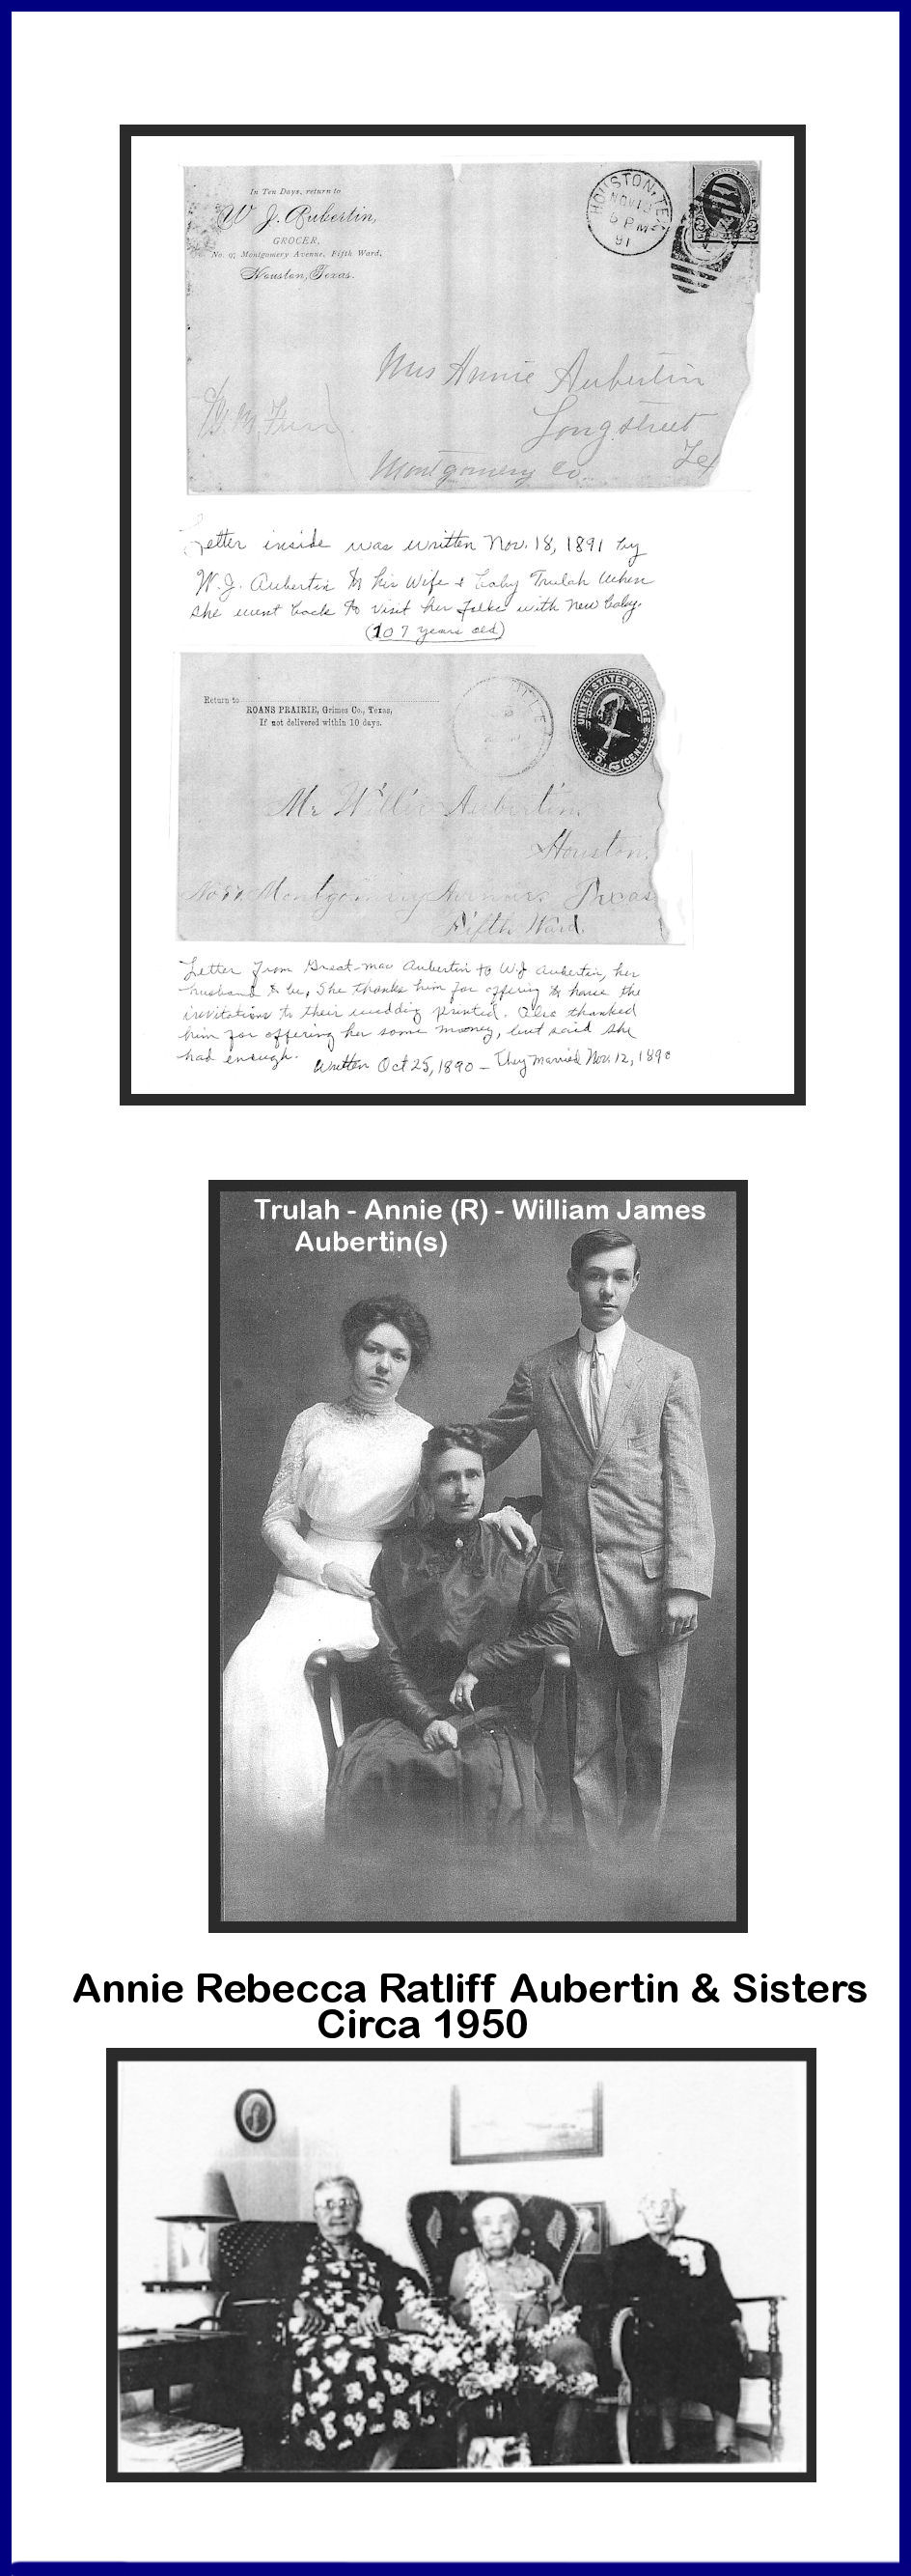 In Ten Days, return to
W J. Aubertin,
GROCER,
Montgomery Avenue, Fifth Ward,
Houston, Texas.
HOUSTON, TEX
NOV 18
6 PM
91
Mrs Annie Aubertin
Longstreet
Montgomery Co. Tex
Letter inside was written Nov. 18, 1891 by
W.J. Aubertin to his Wife & baby Trulah when
she went back to visit her folks with new baby.
(107 years old)
Return to
ROANS PRAIRIE, Grimes Co., Texas,
If not delivered within 10 days.
UNITED STATES POSTAGE
TWO CENTS
Mr Willie Aubertin.
Houston,
Montgomery Avenue Texas
Fifth Ward
Letter from Great-maw Aubertin to W.J Aubertin, her
husband to be, She thanks him for offering to have the
invitations to their wedding printed. Also thanked
him for offering her some money, but said she
had enough. Written Oct 25, 1890 – They Married Nov. 12, 1890
Trulah - Annie (R) - William James
Aubertin(s)
Annie Rebecca Ratliff Aubertin & Sisters
Circa 1950